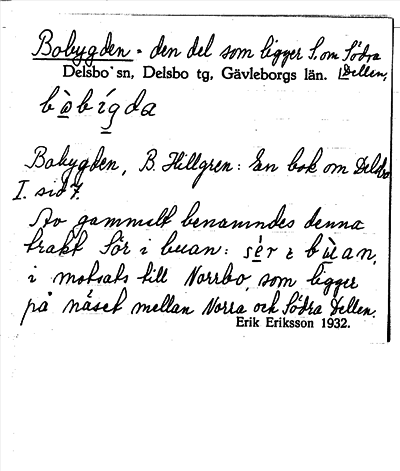 Bobygden - den del som ligger S. om Södra
Delsbo sn, Delsbo tg, Gävleborgs län. Dellen,
bòbígda
Bobygden, B. Hillgren: En bok om Delsbo
I. sid 7.
Av gammalt benämndes denna
trakt Sör i buan: sèr i bùan,
i motsats till Norrbo, som ligger
på näset mellan Norra och Södra Dellen.
Erik Eriksson 1932.